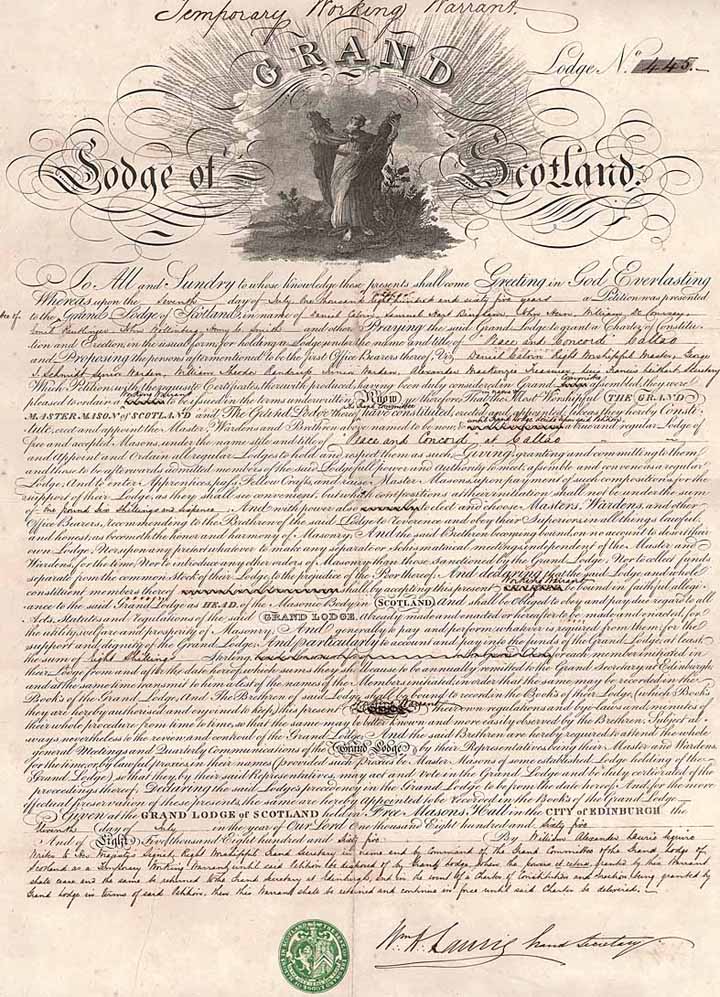 Temporary Working Warrant.
GRAND
Lodge No. 445.
Lodge of Scotland.
To All and Sundry to whose knowledge these presents shall come Greeting in God Everlasting
Whereas upon the Seventh day of July One Thousand Eight hundred and sixty five years a Petition was presented
to the Grand Lodge of Scotland in name of Daniel Samuel John William De Courcey
John Henry Smith and others Praying the said Grand Lodge to grant a Charter of Constitu-
tion and Erection, in the usual form, for holding a Lodge under the name and title of "Peace and Concord" Callao
and Proposing the persons aftermentioned to be the first Office Bearers thereof, Viz Daniel Right Worshipful Master, George
Schmidt Senior Warden, William Rhode Junior Warden, Alexander Mackenzie Treasurer, Francis Secretary
Which Petition, with the requisite Certificates thereto produced, having been duly considered in Grand Committee assembled, they were
pleased to ordain a Working Warrant to be issued in the terms underwritten Know ye therefore That the Most Worshipful THE GRAND
MASTER MASON of SCOTLAND and The Grand Committee have constituted, erected and appointed, as they hereby Consti-
tute, erect and appoint the Master, Wardens and Brethren above named to be now & a true and regular Lodge of
free and accepted Masons, under the name stile and title of "Peace and Concord" at Callao
and Appoint and Ordain all regular Lodges to hold and respect them as such, Giving, granting and committing to them
and those to be afterwards admitted members of the said Lodge full power and Authority to meet, assemble and convene as a regular
Lodge, And to enter Apprentices, pass Fellow Crafts, and raise Master Masons, upon payment of such compositions for the
support of their Lodge, as they shall see convenient, but which compositions at their initiation shall not be under the sum
of One pound Six Shillings and sixpence. And with power also to elect and choose Masters, Wardens, and other
Office Bearers, recommending to the Brethren of the said Lodge to Reverence and obey their Superiors, in all things lawful
and honest, as becometh the honor and harmony of Masonry, And the said Brethren becoming bound, on no account to desert their
own Lodge, Nor upon any pretext whatever to make any separate or Schismatical meetings independent of the Master and
Wardens, for the time, Nor to introduce any other orders of Masonry than those sanctioned by the Grand Lodge, Nor to collect funds
separate from the common Stock of their Lodge, to the prejudice of the Poor thereof, And declaring that the said Lodge and whole
constituent members thereof shall by accepting this present Working Warrant be bound in faithful allegi-
ance to the said Grand Lodge as HEAD of the Masonic Body in SCOTLAND and shall be Obliged to obey and pay due regard to all
Acts, Statutes and Regulations of the said GRAND LODGE, Already made and enacted or hereafter to be made and enacted, for
the utility, welfare and prosperity of Masonry, And generally to pay and perform whatever is required from them for the
support and dignity of the Grand Lodge. And particularly to account and pay into the funds of the Grand Lodge, at least
the sum of Eight Shillings Sterling for each member initiated in
their Lodge from and after the date hereof, such sums thereof Always to be annually remitted to the Grand Secretary, at Edinburgh
and at the same time transmit to him a list of the names of the Members initiated, in order that the same may be recorded in the
Books of the Grand Lodge, And The Brethren of said Lodge, shall be bound to record in the Books of their Lodge (which Books
they are hereby authorised and enjoined to keep) this present Warrant their own regulations and bye-laws and minutes of
their whole procedure from time to time, so that the same may be better known and more easily observed by the Brethren, Subject al-
ways nevertheless to the review and controul of the Grand Lodge. And the said Brethren are hereby required to attend the whole
general Meetings and Quarterly Communications of the Grand Lodge by their Representatives, being their Master and Wardens
for the time, or by lawful proxies in their names (provided said Proxies be Master Masons of some established Lodge holding of the
Grand Lodge) so that they, by their said Representatives, may act and vote in the Grand Lodge and be duly certiorated of the
proceedings thereof, Declaring the said Lodge's precedency in the Grand Lodge to be from the date hereof. And for the more
effectual preservation of these presents, the same are hereby appointed to be recorded in the Books of the Grand Lodge
Given at the GRAND LODGE OF SCOTLAND held in Free Masons Hall in the CITY OF EDINBURGH the
Eleventh day of July in the year of Our Lord One thousand Eight hundred and Sixty five
And of Light Five thousand Eight hundred and Sixty five By William Alexander Laurie Esquire
Writer to Her Majesty's Signet, Right Worshipful Grand Secretary in name and by Command of the Grand Committee of the Grand Lodge of
Scotland as a Temporary Working Warrant until said Petition be disposed of by Grand Lodge, when the powers granted by this Warrant
shall cease and the same be returned to the Grand Secretary at Edinburgh, and in the event of a Charter of Constitution and Erection being granted by
Grand Lodge in terms of said Petition, then this Warrant shall be returned and continue in force until said Charter be delivered.
Wm. A. Laurie Grand Secretary